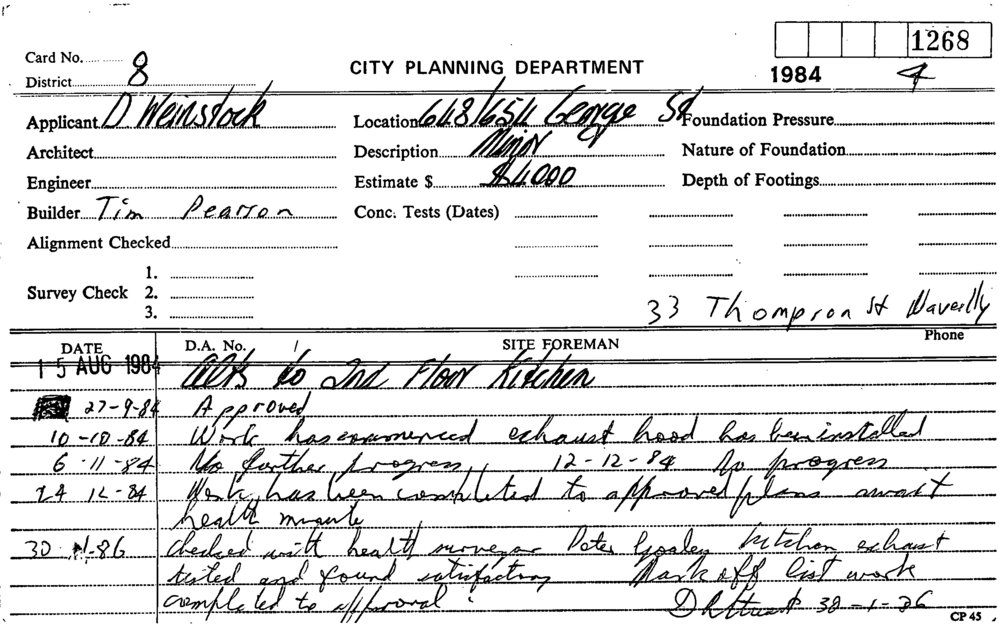 1268
Card No. 8
CITY PLANNING DEPARTMENT
1984 4
District
Applicant D Weinstock
Location 648/654 George St
Foundation Pressure
Architect
Description Minor
Nature of Foundation
Engineer
Estimate $ $4000
Depth of Footings
Builder Tim Pearson
Conc. Tests (Dates)
Alignment Checked
1.
Survey Check 2.
3.
33 Thompson St Waverlly
DATE D.A. No. SITE FOREMAN Phone
15 AUG 1984 Alts to 2nd Floor Kitchen
27-9-84 Approved
10-10-84 Work has commenced exhaust hood has been installed
6-11-84 No further progress, 12-12-84 No progress
24 12-84 Work has been completed to approved plans await
health minute
30 -1-86 Checked with health surveyor Peter kitchen exhaust
tested and found satisfactory Mark off list work
completed to approval. 30-1-86
CP 45